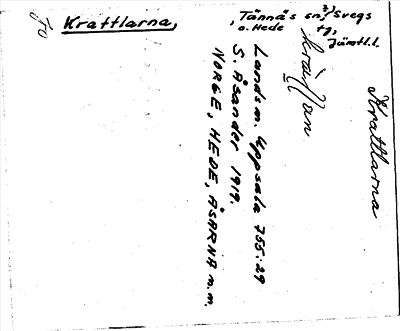 Krattlarna, , Tännäs sn, Svegs
o. Hede tg,
Jämtl.l.
Krattlarna
Landsm. Uppsala 755:29
S. Åsander 1919.
NORGE, HEDE, ÅSARNA m.m.